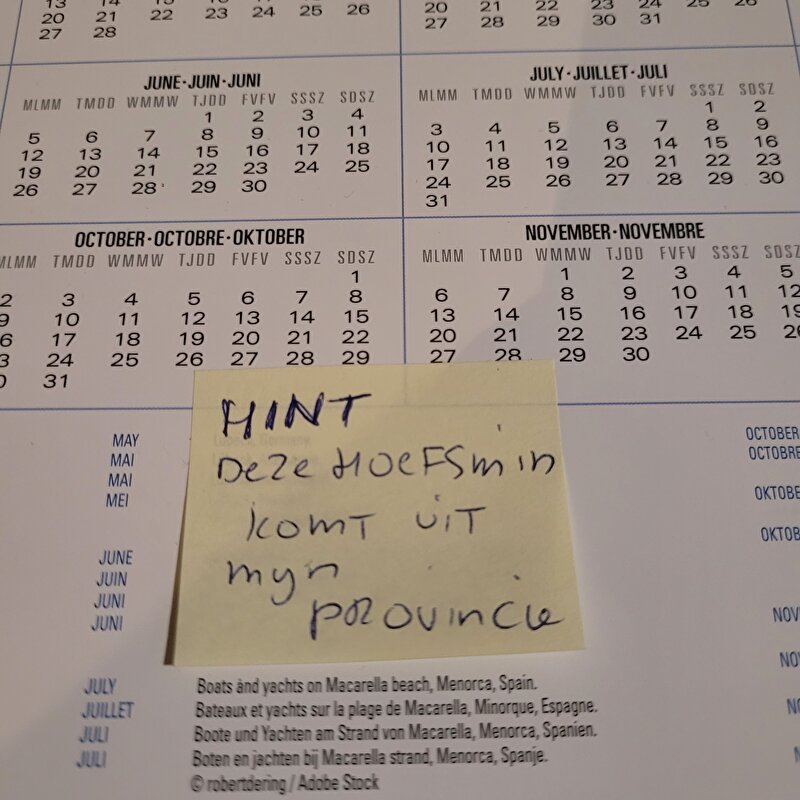 13 14
20 21 22 23 24 25 26
27 28
20 21 22 23 24 25 26
27 28 29 30 31
JUNE·JUIN·JUNI
MLMM TMDD WMMW TJDD FVFV SSSZ SDSZ
1 2 3 4
5 6 7 8 9 10 11
12 13 14 15 16 17 18
19 20 21 22 23 24 25
26 27 28 29 30
JULY·JUILLET·JULI
MLMM TMDD WMMW TJDD FVFV SSSZ SDSZ
1 2
3 4 5 6 7 8 9
10 11 12 13 14 15 16
17 18 19 20 21 22 23
24 25 26 27 28 29 30
31
OCTOBER·OCTOBRE·OKTOBER
MLMM TMDD WMMW TJDD FVFV SSSZ SDSZ
1
2 3 4 5 6 7 8
9 10 11 12 13 14 15
16 17 18 19 20 21 22
23 24 25 26 27 28 29
30 31
NOVEMBER·NOVEMBRE
MLMM TMDD WMMW TJDD FVFV SSSZ SDSZ
1 2 3 4 5
6 7 8 9 10 11 12
13 14 15 16 17 18 19
20 21 22 23 24 25 26
27 28 29 30
HINT
Deze HOEFSmin
komt uit
myn
provincie
MAY
MAI
MAI
MEI
JUNE
JUIN
JUNI
JUNI
JULY Boats and yachts on Macarella beach, Menorca, Spain.
JUILLET Bateaux et yachts sur la plage de Macarella, Minorque, Espagne.
JULI Boote und Yachten am Strand von Macarella, Menorca, Spanien.
JULI Boten en jachten bij Macarella strand, Menorca, Spanje.
© robertdering / Adobe Stock
OCTOBER
OCTOBRE
OKTOBE
OKTOB
NOV
NO